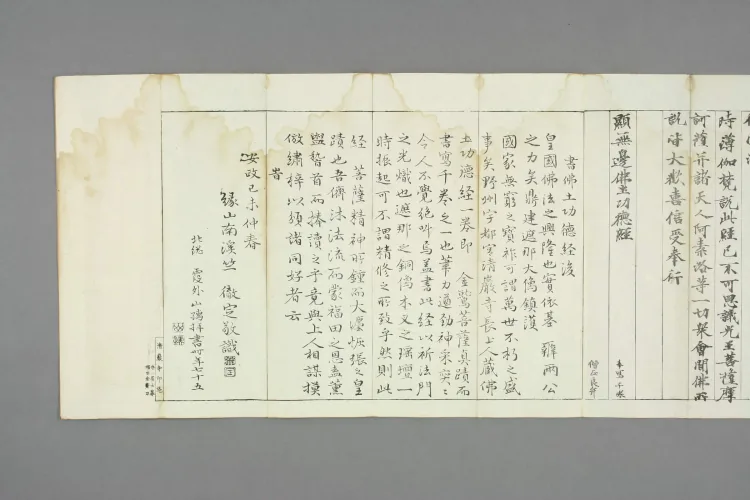 時薄伽梵說此經已不可思議光王菩薩摩
訶薩并諸天人阿素洛等一切眾會聞佛所
說皆大歡喜信受奉行
顯無邊佛土功德經
書佛土功德經後
皇國佛法之興隆也實依基 辨兩公
之力矣鼎建遮那大像鎮護
國家無窮之寶祚可謂萬世不朽之盛
事矣野州宇都宮清嚴寺長上人藏佛
土功德經一卷即 金鷲菩薩真蹟而
書寫千卷之一也筆力遒勁神采奕々
今人不覺絕叫焉蓋書此經以祈法門
之光熾也遮那之銅像木叉之瑤壇一
時振起可不謂精修之所致乎然則此
經 菩薩精神所鍾而大運恢張之皇
蹟也吾儕沐法流而蒙福田之恩盍薰
盥稽首而捧讀之乎竟與上人相謀摸
倣繡梓以頒諸同好者云
安政己未仲春
緣山南溪竺 徹定敬識